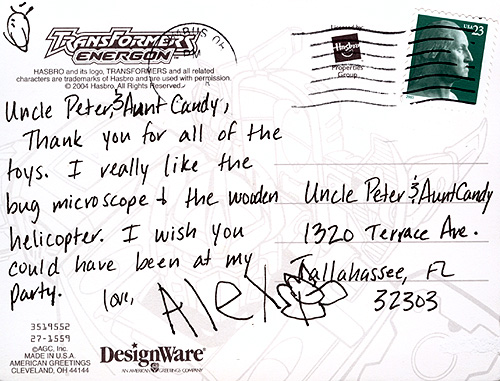 TRANSFORMERS
ENERGON
HASBRO and its logo, TRANSFORMERS and all related
characters are trademarks of Hasbro and are used with permission.
© 2004 Hasbro. All Rights Reserved.
Hasbro
Properties
Group
USA 23
Uncle Peter, & Aunt Candy,
Thank you for all of the
toys. I really like the
bug microscope & the wooden
helicopter. I wish you
could have been at my
party.
love, Alex
Uncle Peter & Aunt Candy
1320 Terrace Ave.
Tallahassee, FL
32303
3519552
27-1559
©AGC, Inc.
MADE IN U.S.A.
AMERICAN GREETINGS
CLEVELAND, OH 44144
DesignWare
AN AMERICAN GREETINGS COMPANY